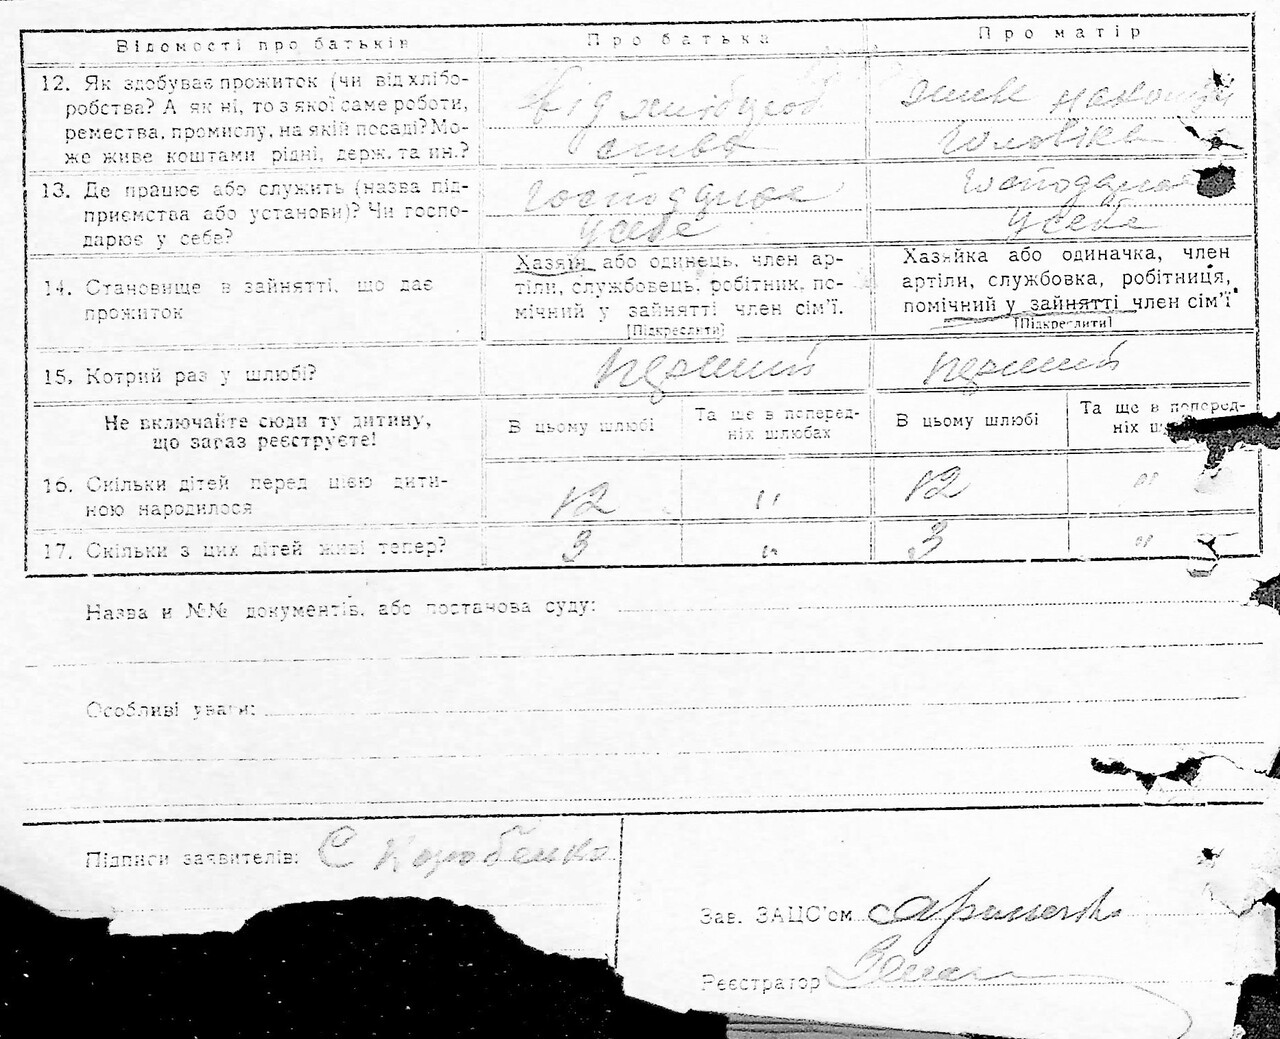 Відомості про батьків
Про батька
Про матір
12. Як здобуває прожиток (чи від хлібо-
робства? А як ні, то з якої саме роботи,
ремества, промислу, на якій посаді? Мо-
же живе коштами рідні, держ. та ин.?
від хлібороб
ства
живе на кошти
Чоловіка
13. Де працює або служить (назва під-
приємства або установи)? Чи госпо-
дарює у себе?
Господарює
У себе
Господарює
У себе
14. Становище в зайнятті, що дає
прожиток
Хазяїн або одинець, член ар-
тіли, службовець, робітник, по-
мічний у зайнятті член сім'ї.
[Підкреслити]
Хазяйка або одиначка, член
артіли, службовка, робітниця,
помічний у зайнятті член сім'ї
[Підкреслити]
15. Котрий раз у шлюбі?
перший
перший
Не включайте сюди ту дитину,
що зараз реєструєте!
В цьому шлюбі
Та ще в поперед-
ніх шлюбах
В цьому шлюбі
Та ще в поперед-
ніх
16. Скільки дітей перед цією дити-
ною народилося
12
"
12
"
17. Скільки з цих дітей живі тепер?
3
"
3
"
Назва и №№ документів, або постанова суду:
Особливі уваги:
Підписи заявителів: С Коробенко
Зав. ЗАЦС'ом
Реєстратор